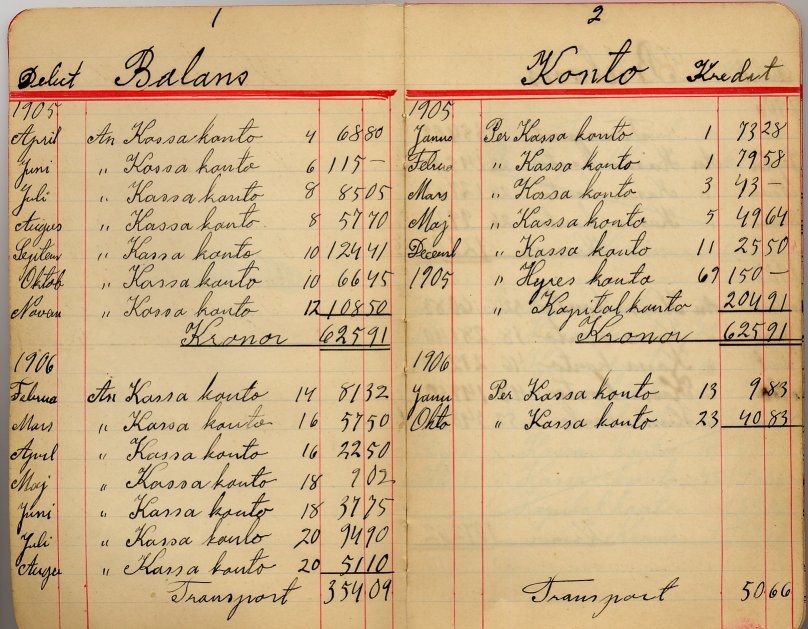 1
Debet Balans
1905
April An Kassa konto 4 68 80
Juni " Kassa konto 6 115 —
Juli " Kassa konto 8 85 05
Augus " Kassa konto 8 57 70
Septem " Kassa konto 10 124 41
Oktob " Kassa konto 10 66 45
Novem " Kassa konto 12 108 50
Kronor 625 91
1906
Februa An Kassa konto 14 81 32
Mars " Kassa konto 16 57 50
April " Kassa konto 16 22 50
Maj " Kassa konto 18 9 02
Juni " Kassa konto 18 37 75
Juli " Kassa konto 20 94 90
Augu " Kassa konto 20 51 10
Transport 354 09
2
Konto Kredit
1905
Janu Per Kassa konto 1 73 28
Februa " Kassa konto 1 79 58
Mars " Kassa konto 3 43 —
Maj " Kassa konto 5 49 64
Decemb " Kassa konto 11 25 50
1905 " Hyres konto 69 150 —
" Kapital konto 204 91
Kronor 625 91
1906
Janu Per Kassa konto 13 9 83
Okto " Kassa konto 23 40 83
Transport 50 66